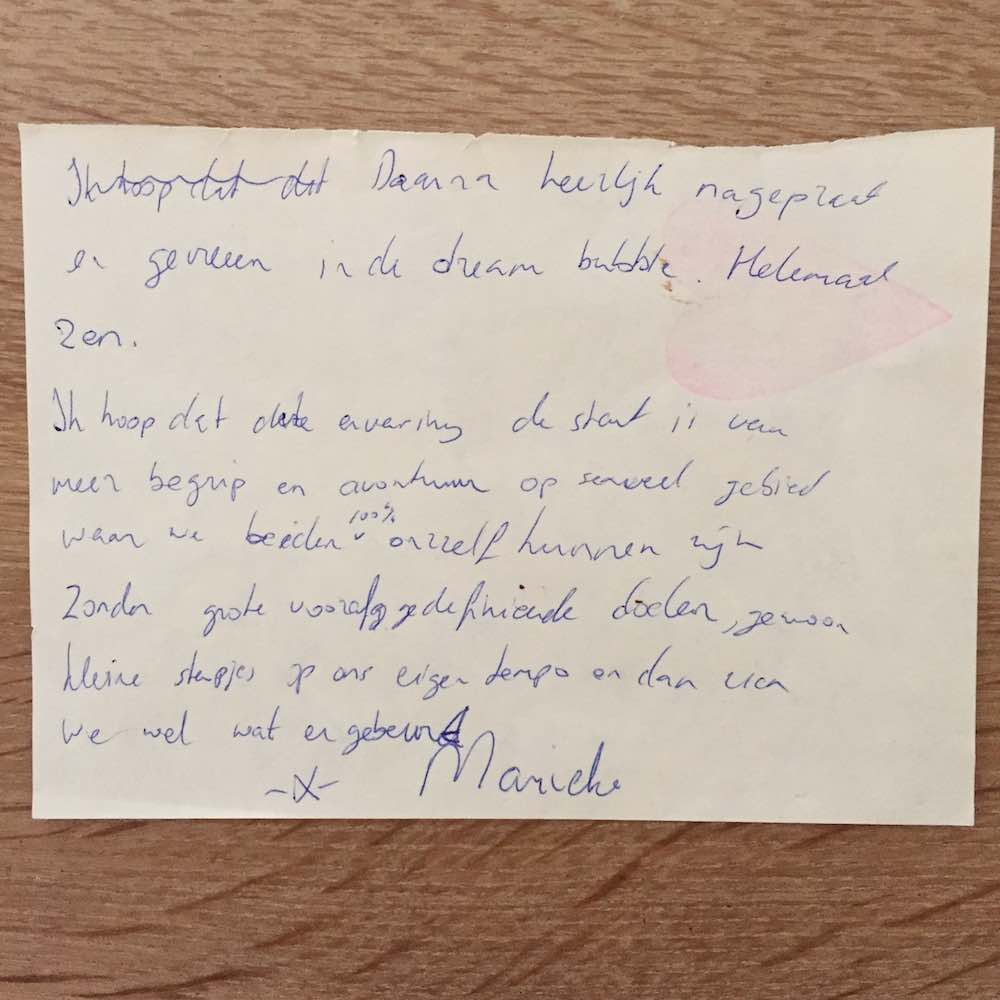 Ik hoop dat dat Daarna heerlijk nagepraat
en gevreeën in de dream bubble. Helemaal
zen.
Ik hoop dat deze ervaring de start is van
meer begrip en avontuur op sexueel gebied
waar we beiden 100% onszelf kunnen zijn
Zonder grote voorafg gedefinieerde doelen, gewoon
kleine stapjes op ons eigen tempo en dan zien
we wel wat er gebeurd
-X- Marieke